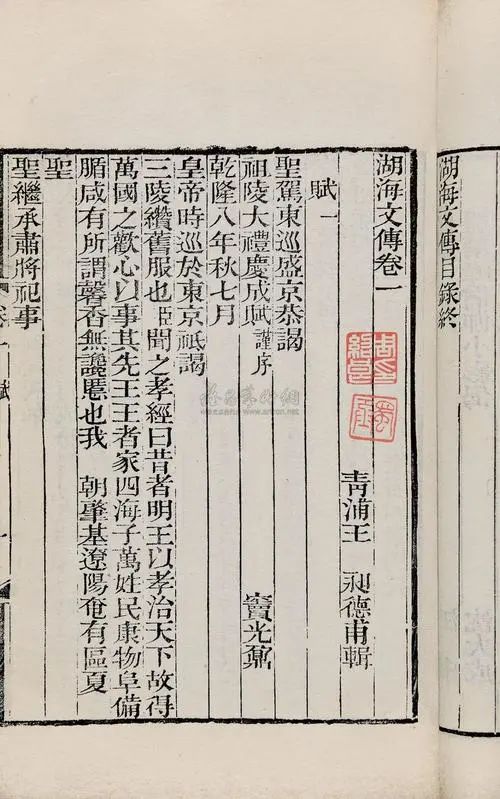 湖海文傳目錄終
湖海文傳卷一
青浦王 昶德甫輯
賦一
聖駕東巡盛京恭謁
祖陵大禮慶成賦謹序 竇光鼐
乾隆八年秋七月
皇帝時巡於東京祗謁
三陵纘舊服也臣聞之孝經曰昔者明王以孝治天下故得
萬國之歡心以事其先王王者家四海子萬姓民康物阜備
腯咸有所謂馨香無讒慝也我 朝肇基遼陽奄有區夏
聖
聖繼承肅將祀事
卷一 賦 一